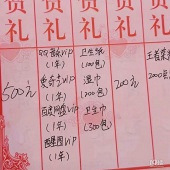 贺礼
500元
贺礼
QQ音乐VIP
(1年)
爱奇艺VIP
(1年)
百度网盘VIP
(1年)
酷星图VIP
(1年)
贺礼
卫生纸
(100包)
湿巾
(200包)
卫生巾
(300包)
贺礼
200元
贺礼
王者荣